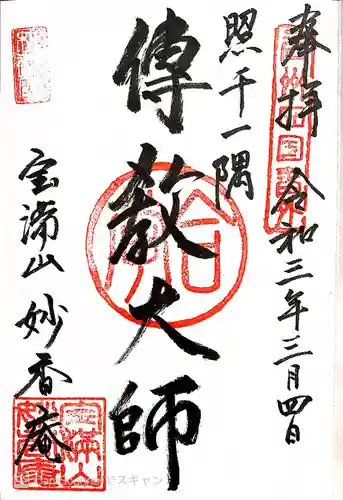 奉拝 令和三年三月四日
照千一隅
傳教大師
宝満山 妙香庵
スキャン